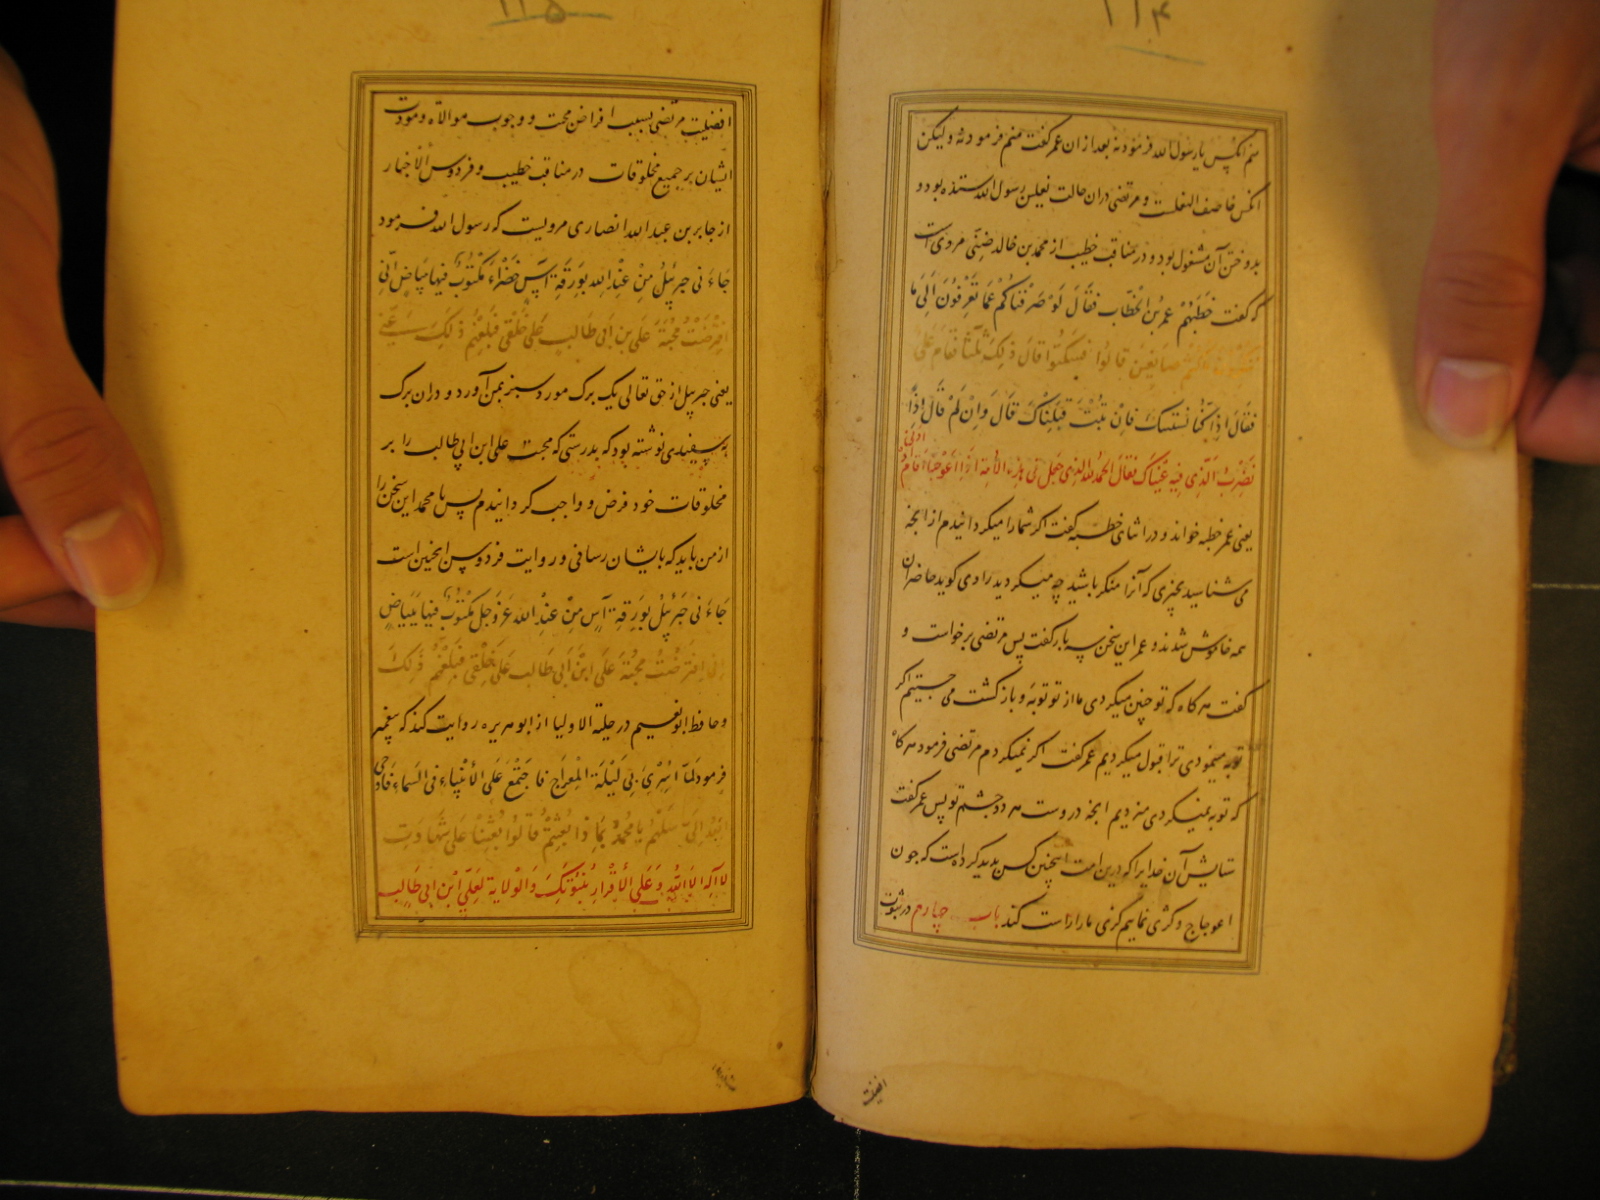 ۱۱۴
منم آنکس یا رسول الله فرمود نه بعد از ان عمر گفت منم فرمود نه ولیکن
آنکس خاصف النعلست و مرتضی دران حالت نعلین رسول الله ستده بود و
بدوختن آن مشغول بود و در مناقب خطیب از محمد بن خالد ضبّی مرویست
که گفت خَطَبَهُمْ عمر بن الخطاب فَقَالَ لَوْ صَرَفْنَاکُمْ عَمَّا تَعْرِفُونَ اِلَی مَا
صَانِعِینَ قَالُوا فَسَکَتُوا قَالَ ذٰلِکَ ثَلٰثًا فَقَامَ عَلِیٌّ
فَقَالَ اِذًا کُنَّا نَسْتَتِیبُکَ فَاِنْ تُبْتَ قَبِلْنَاکَ قَالَ وَاِنْ لَمْ قَالَ اِذًا
نَضْرِبُ الَّذِی فِیهِ عَیْنَاکَ فَقَالَ الحَمْدُ لِلّٰهِ الَّذِی جَعَلَ فِی هٰذِهِ الاُمَّةِ اِذَا اعْوَجَجْنَا اَقَامَ
یعنی عمر خطبه خواند و در اثنای خطبه گفت اگر شما را میگردانیدم از انچه
می شناسید بچیزی که آنرا منکر باشید چه میکردید راوی گوید حاضران
همه خاموش شدند و عمر این سخن سه بار گفت پس مرتضی برخواست و
گفت هرگاه که تو چنین میکردی ما از تو توبه و بازگشت می جستیم اگر
توبه مینمودی ترا قبول میکردیم عمر گفت اگر نمیکردم مرتضی فرمود هرگاه
که توبه نمیکردی میزدیم انچه دروست هر دو چشم تو پس عمر گفت
ستایش آن خدایرا که درین امت اینچنین کس پدید کرده است که چون
اعوجاج و کژی نماییم کژی ما را راست کند باب چهارم در ثبوت
افضلیت
۱۱۵
افضلیت مرتضی بسبب افراض محبت و وجوب موالاة و مودت
ایشان بر جمیع مخلوقات در مناقب خطیب و فردوس الاخبار
از جابر بن عبد الله انصاری مرویست که رسول الله فرمود
جَاءَنِی جِبْرَئِیلُ مِنْ عِنْدِ اللهِ بِوَرَقَةِ آسٍ خَضْرَاءَ مَکْتُوبٌ فِیهَا بِبَیَاضٍ اِنِّی
افْتَرَضْتُ مَحَبَّةَ عَلِیِّ بنِ اَبِی طَالِبٍ عَلَی خَلْقِی فَبَلِّغْهُمْ ذٰلِکَ عَنِّی
یعنی جبرئیل از حق تعالی یک برک مورد سبز بمن آورد و دران برک
بسپیدی نوشته بود که بدرستی که محبت علی ابن ابی طالب را بر
مخلوقات خود فرض و واجب گردانیدم پس یا محمد این سخن را
از من باید که بایشان رسانی و روایت فردوس اینچنین است
جَاءَنِی جِبْرَئِیلُ بِوَرَقَةِ آسٍ مِنْ عِنْدِ اللهِ عَزَّ وَجَلَّ مَکْتُوبٌ فِیهَا بِبَیَاضٍ
اِنِّی افْتَرَضْتُ مَحَبَّةَ عَلِیِّ ابْنِ اَبِی طَالِبٍ عَلَی خَلْقِی فَبَلِّغْهُمْ ذٰلِکَ
و حافظ ابو نعیم در حلیة الاولیا از ابو هریره روایت کند که پیغمبر
فرمود لَمَّا اُسْرِیَ بِی لَیْلَةَ الْمِعْرَاجِ فَاجْتَمَعَ عَلَیَّ الْاَنْبِیَاءُ فِی السَّمَاءِ فَاَوْحَی
اللهُ اِلَیَّ سَلْهُمْ یَا مُحَمَّدُ بِمَاذَا بُعِثْتُمْ قَالُوا بُعِثْنَا عَلَی شَهَادَتِ
لَا اِلٰهَ اِلَّا اللهُ وَعَلَی الْاِقْرَارِ بِنُبُوَّتِکَ وَالْوِلَایَةِ لِعَلِیِّ ابْنِ اَبِی طَالِبٍ